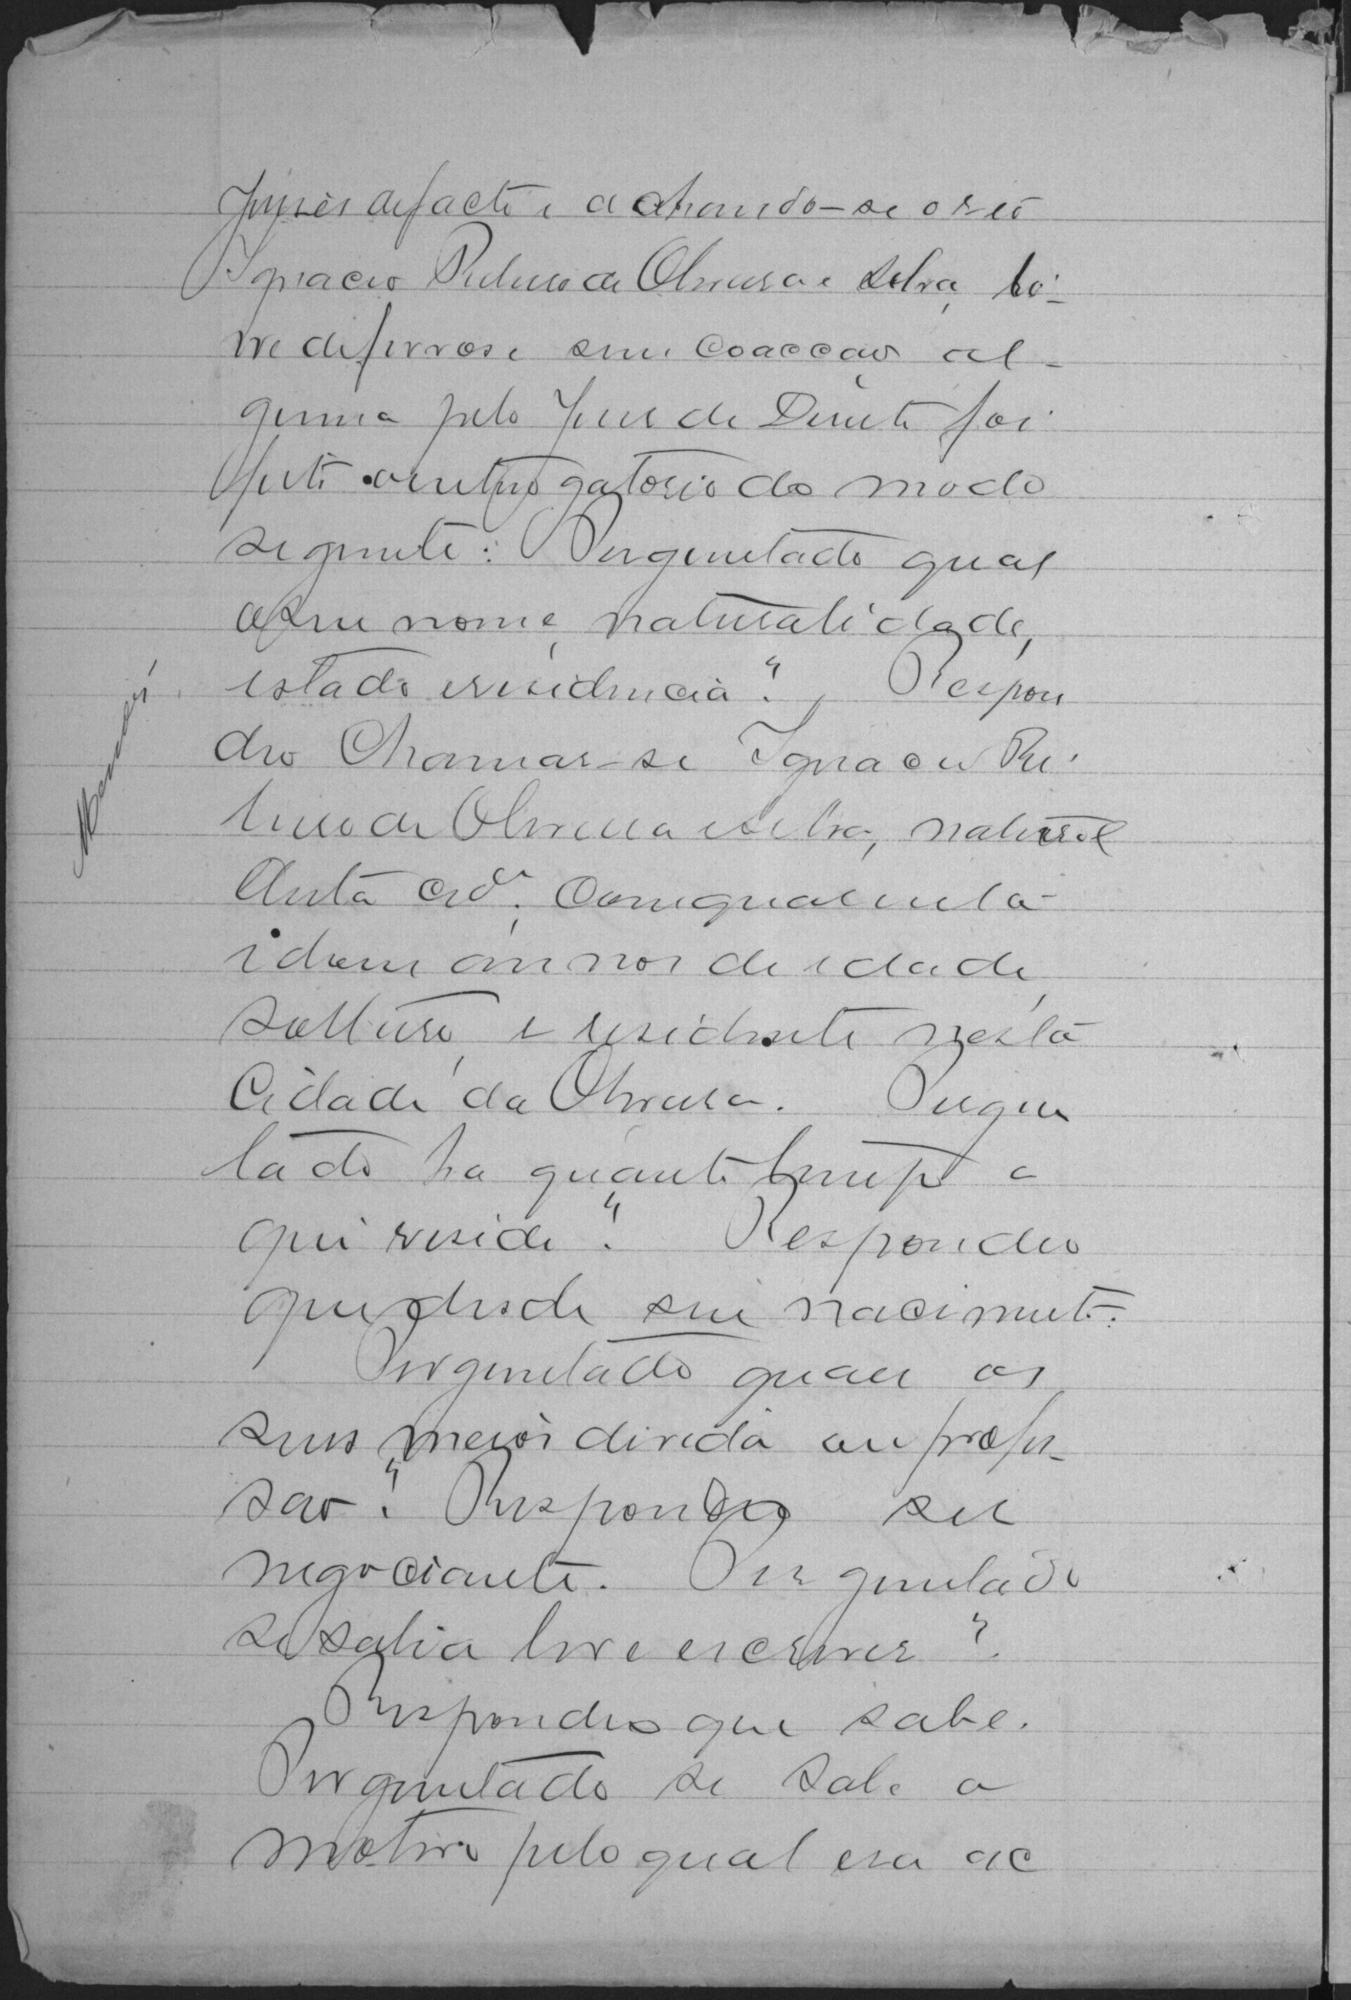 Juises de facto e achando-se o réo
Ignacio Ribeiro de Oliveira e Silva, li-
vre de ferros e sem coacção al-
guma pelo Juis de Direito foi
feito o interrogatorio do modo
seguinte: Perguntado qual
o seu nome, naturalidade,
estado e residencia? Respon
deo chamar-se Ignacio Ri-
beiro de Oliveira e Silva, natural
desta cid.e com quarenta
annos de idade,
solteiro, e residente nesta
Cidade da Oliveira. Pergun
tado ha quanto tempo a
qui reside? Respondeo
que desde seu nacimento.
Perguntado quaes os
seus meios de vida ou profis-
são? Respondeo ser
negociante. Perguntado
se sabia ler e escrever?
Respondeo que sabe.
Perguntado se sabe o
motivo pelo qual era ac